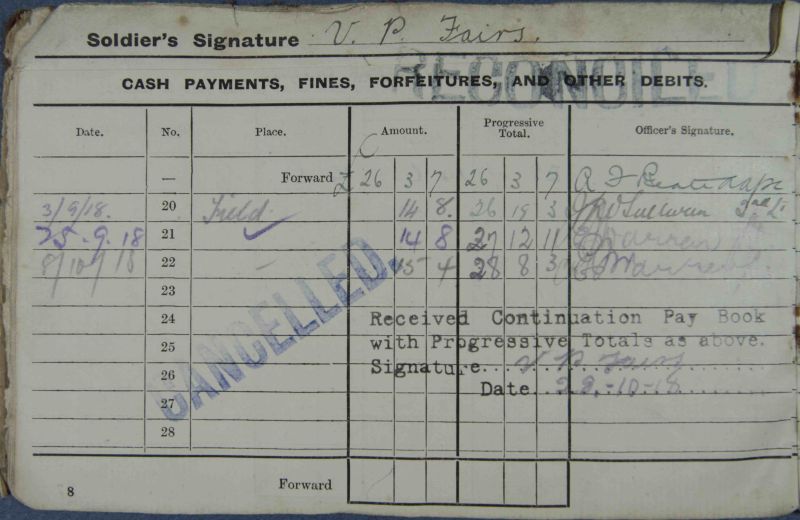 Soldier's Signature V. P. Fairs.
RECONCILED
CASH PAYMENTS, FINES, FORFEITURES, AND OTHER DEBITS.
Date. No. Place. Amount. Progressive Total. Officer's Signature.
— Forward £ 26 3 7 26 3 7 A F
3/9/18. 20 Field. 14 8. 26 19 3 J O'Sullivan 2nd Lt
25.9.18 21 14 8 27 12 11 Warren
8/10/18 22 — 15 4 28 8 3 Warren
23
24 Received Continuation Pay Book
25 with Progressive Totals as above.
26 Signature... V. P. Fairs
Date.. 22.-10-18
27
28
CANCELLED.
8 Forward